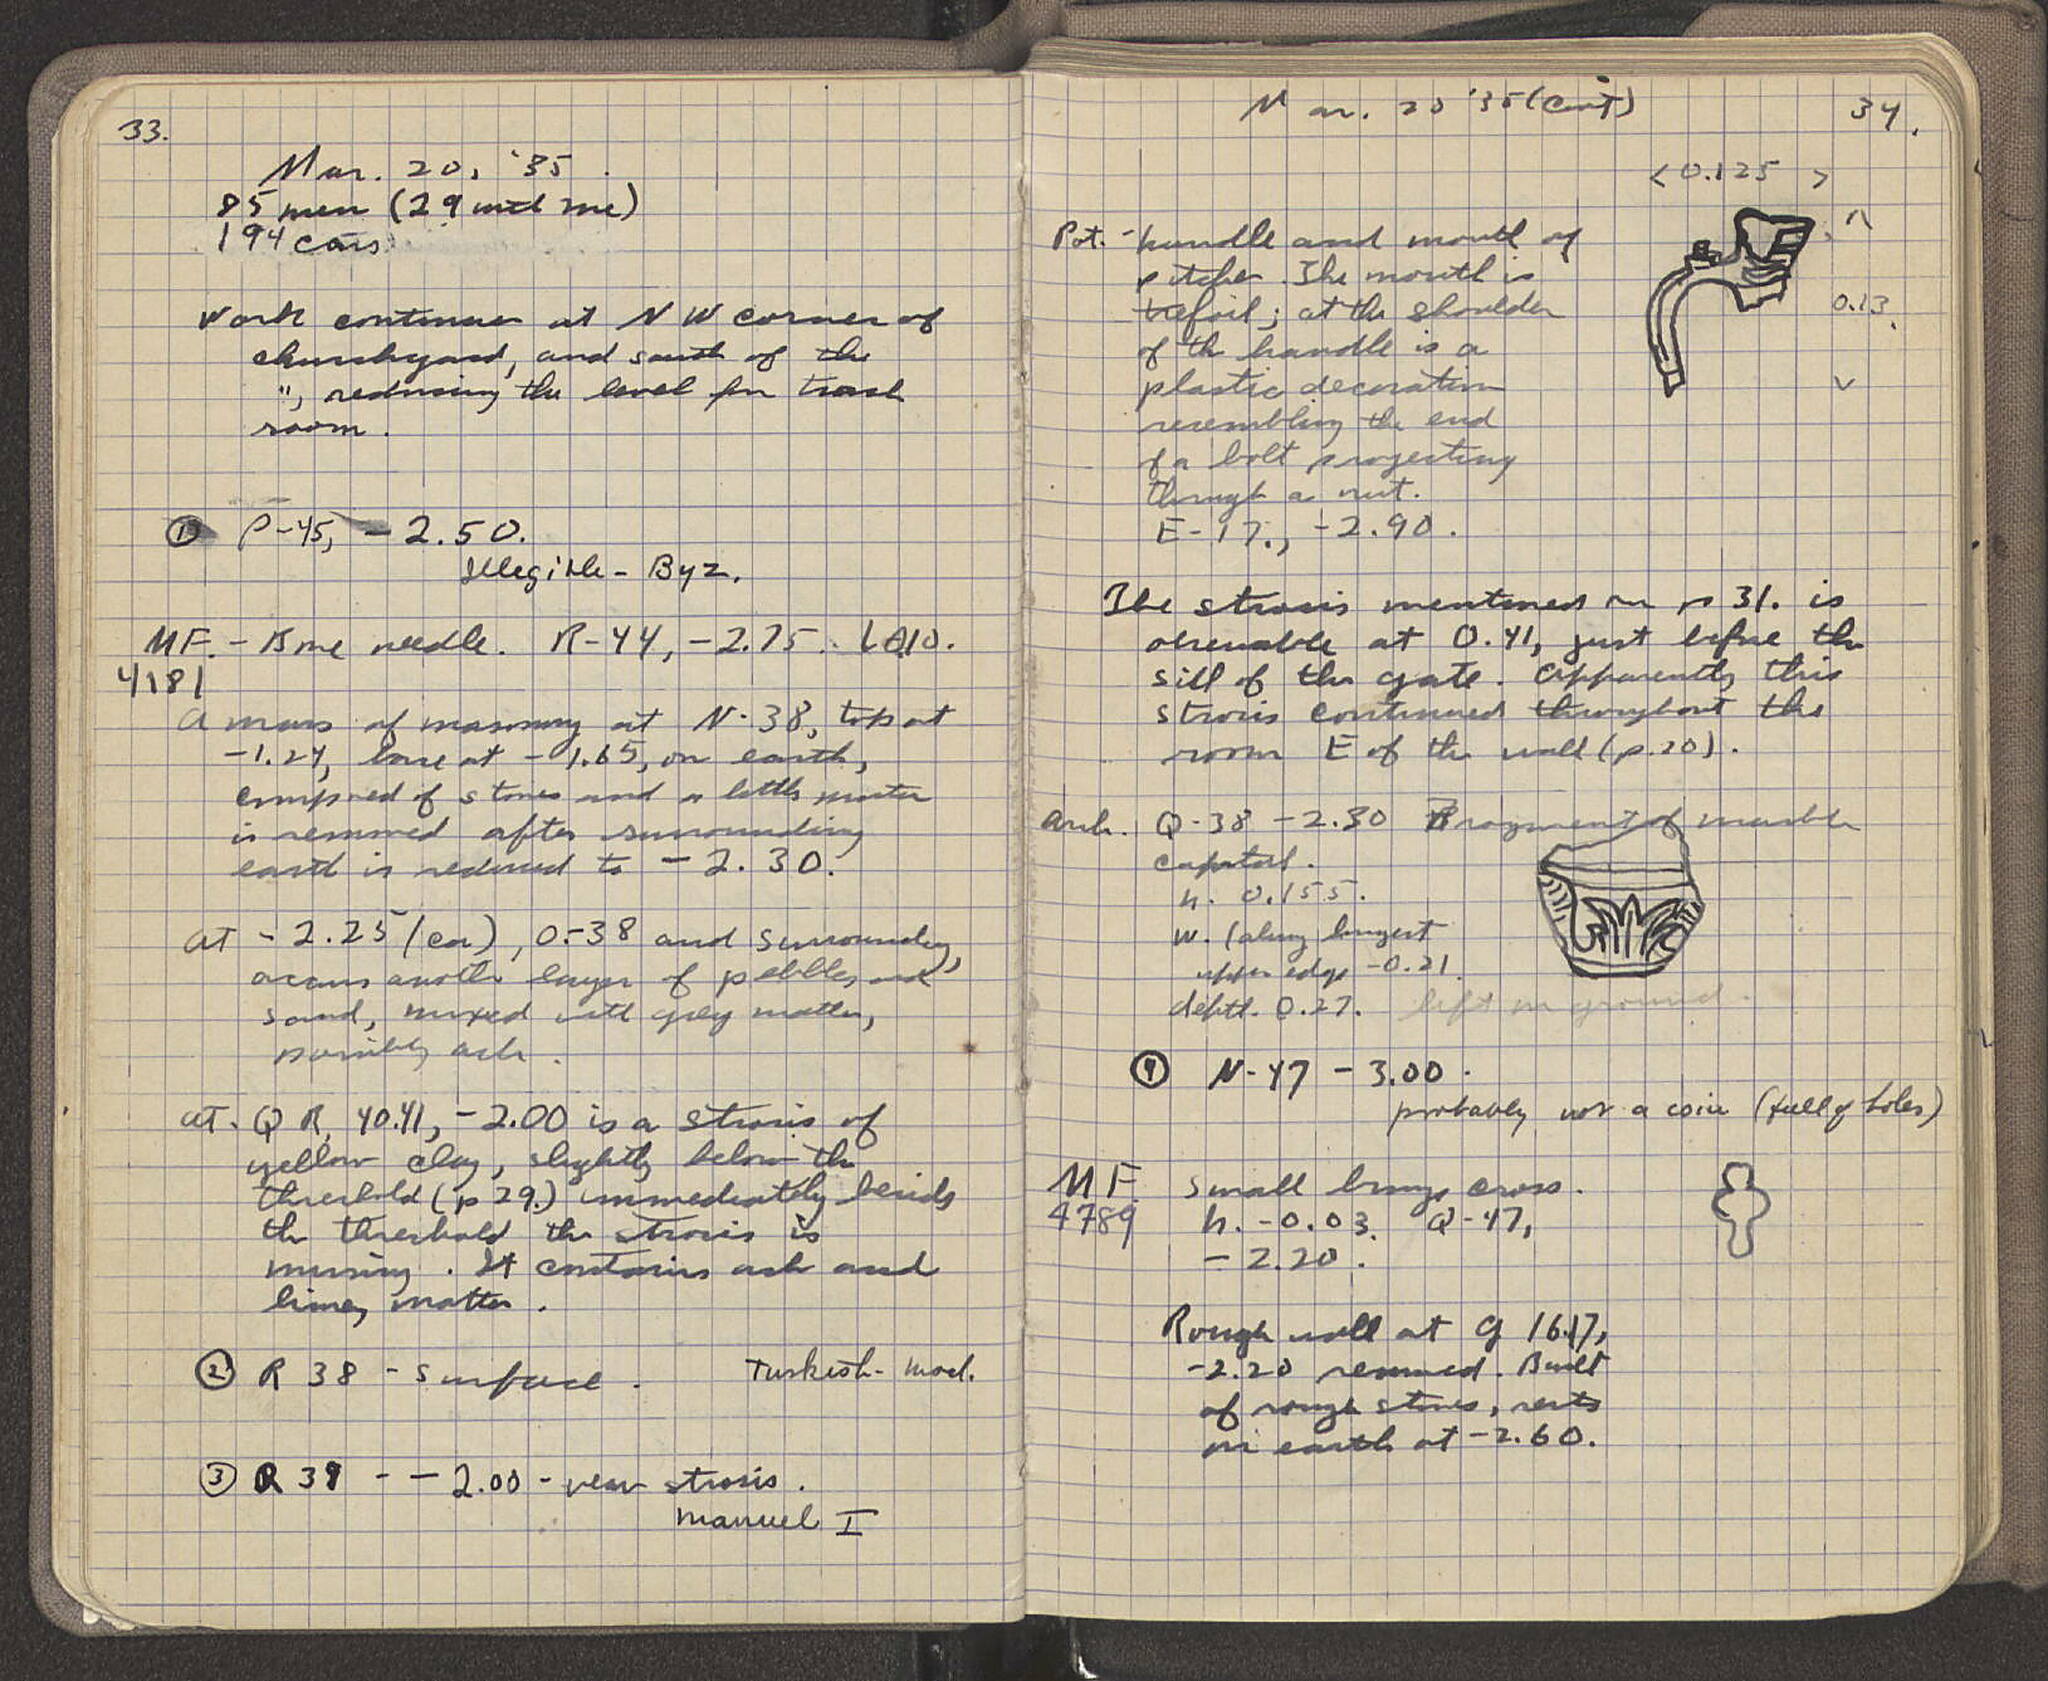 33.
Mar. 20, '35.
85 men (29 with me)
194 cars
Work continues at NW corner of
churchyard, and south of the
", reducing the level for trash
room.
① P-45, -2.50.
Illegible - Byz.
MF. - Bone needle. R-44, -2.75. L 0.10.
4181
A mass of masonry at N-38, top at
-1.24, base at -1.65, on earth,
composed of stones and a little mortar
is removed after surrounding
earth is reduced to -2.30.
At -2.25 (ca), O-38 and surrounding,
occurs another layer of pebbles and
sand, mixed with grey matter,
possibly ash.
At. Q R, 40.41, -2.00 is a strosis of
yellow clay, slightly below the
threshold (p 29.) immediately beside
the threshold the strosis is
missing. It contains ash and
limey matter.
② R 38 - surface. Turkish - mod.
③ R 39 - -2.00 - near strosis.
Manuel I
Mar. 20 '35 (Cont)
34.
< 0.125 >
Pot. - handle and mouth of
pitcher. The mouth is
trefoil; at the shoulder
of the handle is a
plastic decoration
resembling the end
of a bolt projecting
through a nut.
E-17., -2.90.
^
0.13.
v
The strosis mentioned on p 31. is
observable at 0.41, just before the
sill of the gate. Apparently this
strosis continued throughout the
room E of the wall (p. 20).
Arch. Q-38 -2.30 Fragment of marble
capital.
h. 0.155.
w. (along longest
upper edge -0.21.
depth. 0.27. left in ground.
④ N-47 -3.00.
probably not a coin (full of holes)
MF Small bronze cross.
4789 h. -0.03. Q-47,
-2.20.
Rough wall at G 16.17,
-2.20 removed. Built
of rough stones, rests
on earth at -2.60.